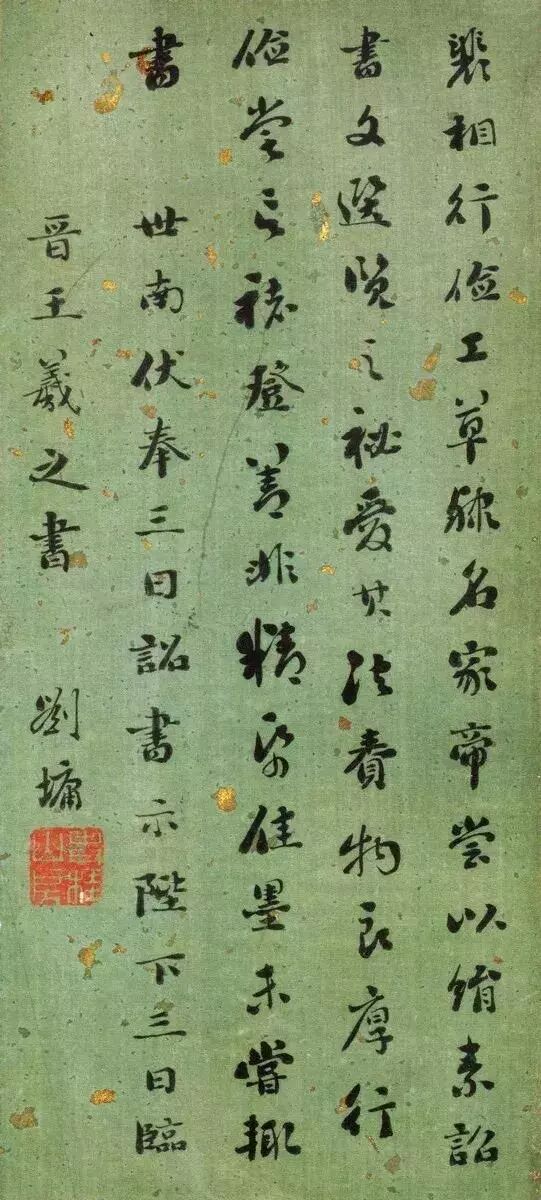 裴相行儉工草隸名家帝嘗以絹素詔
書文選覽之祕愛其法賚物良厚行
儉嘗言褚登善非精帋佳墨未嘗輒
書 世南伏奉三日詔書示陛下三日臨
晉王羲之書 劉墉